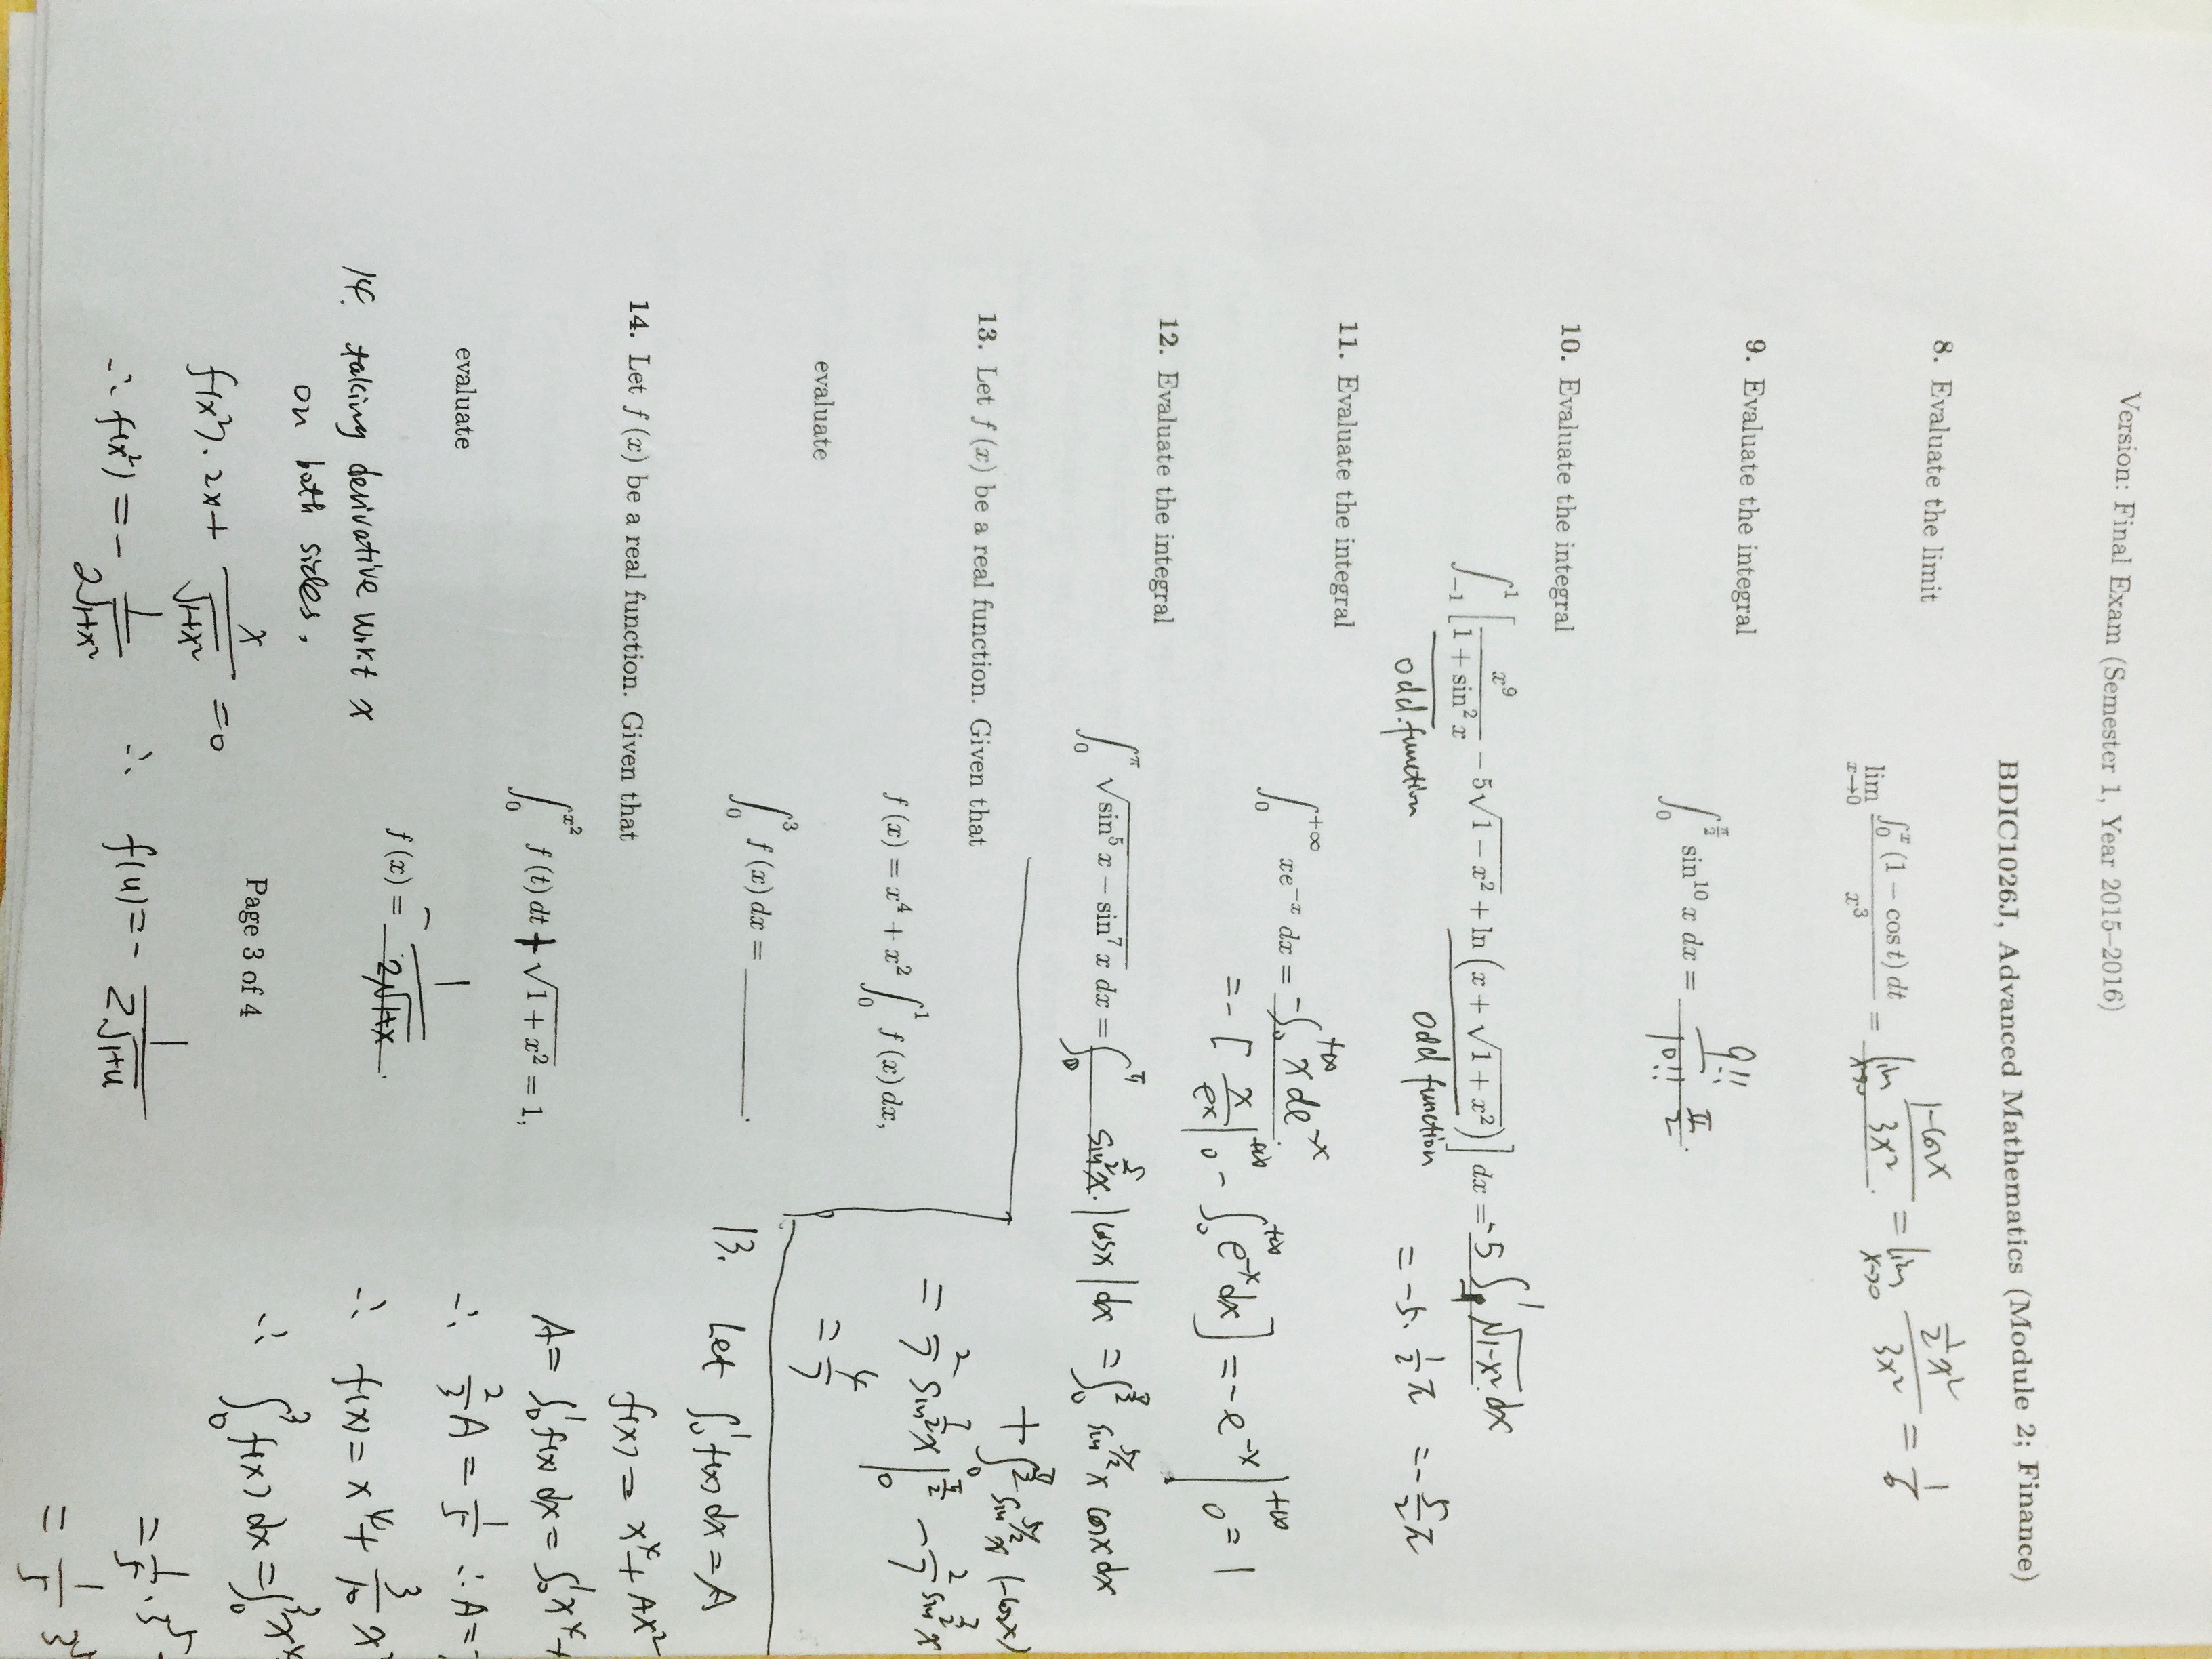 Version: Final Exam (Semester 1, Year 2015–2016)
BDIC1026J, Advanced Mathematics (Module 2; Finance)
8. Evaluate the limit
lim_{x→0} ∫_0^x (1 − cos t) dt / x^3 = lim_{x→0} (1-cosx)/(3x²) = lim_{x→0} (½x²)/(3x²) = 1/6
9. Evaluate the integral
∫_0^{π/2} sin^{10} x dx = 9!!/10!! · π/2 .
10. Evaluate the integral
∫_{−1}^1 [ x^9/(1 + sin² x) − 5√(1 − x²) + ln (x + √(1 + x²)) ] dx = -5 ∫_{-1}^1 √(1-x²) dx
odd function odd function = -5· ½π = -5/2 π
11. Evaluate the integral
∫_0^{+∞} xe^{−x} dx = -∫_0^{+∞} x de^{-x} .
= - [ x/e^x |_0^{+∞} - ∫_0^{+∞} e^{-x}dx ] = -e^{-x} |_0^{+∞} = 1
12. Evaluate the integral
∫_0^π √(sin⁵ x − sin⁷ x) dx = ∫_0^π sin^{5/2}x · |cosx| dx = ∫_0^{π/2} sin^{5/2}x cosx dx
sin^{5/2}x (-cosx)
13. Let f (x) be a real function. Given that
= 2/7 sin^{7/2}x |_0^{π/2} - 2/7
f (x) = x⁴ + x² ∫_0^1 f (x) dx,
= 4/7
evaluate
∫_0^3 f (x) dx = ________ .
13. Let ∫_0^1 f(x) dx = A
f(x) = x⁴ + Ax²
14. Let f (x) be a real function. Given that
A = ∫_0^1 f(x) dx = ∫_0^1 x⁴ +
∫_0^{x²} f (t) dt + √(1 + x²) = 1,
∴ 2/3 A = 1/5 ∴ A =
evaluate
f (x) = - 1/(2√(1+x)) .
∴ f(x) = x⁴ + 3/10 x
∴ ∫_0^3 f(x) dx = ∫_0^3 x⁴
= 1/5 · 3⁵
= 1/5
14. taking derivative wrt x
on both sides,
f(x²)· 2x + x/√(1+x²) = 0
∴ f(x²) = - 1/(2√(1+x²)) ∴ f(u) = - 1/(2√(1+u))
Page 3 of 4